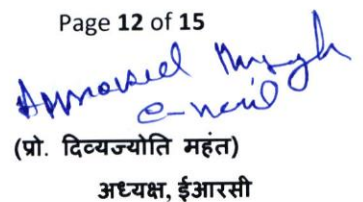 Page 12 of 15
Approved
e-mail
(प्रो. दिव्यज्योति महंत)
अध्यक्ष, ईआरसी